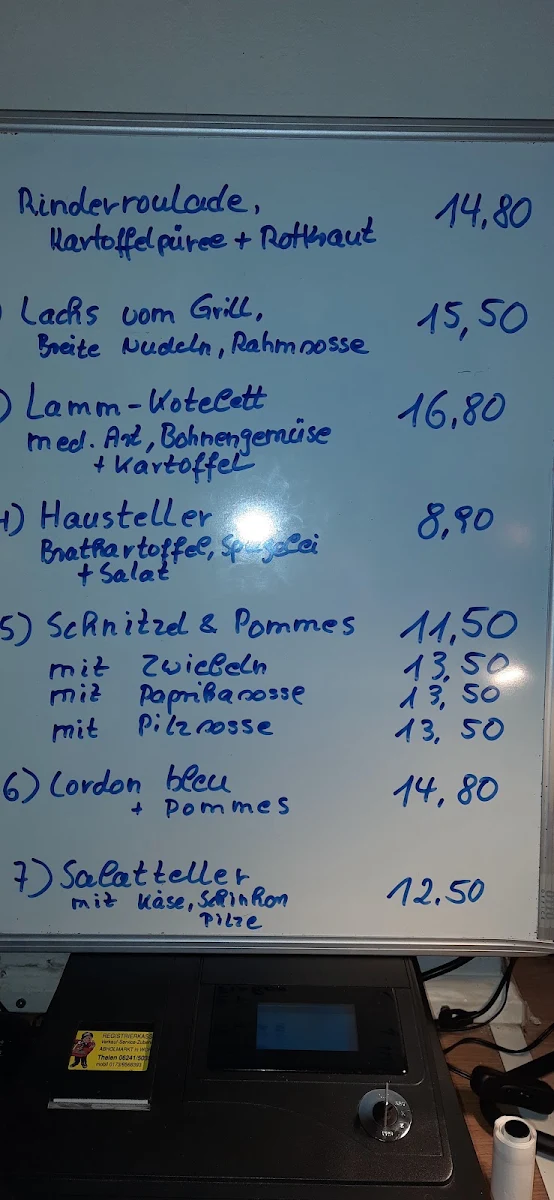 Rinderroulade, 14,80
Kartoffelpüree + Rotkraut
) Lachs vom Grill, 15,50
Breite Nudeln, Rahmsosse
) Lamm-Kotelett 16,80
med. Art, Bohnengemüse
+ Kartoffel
4) Hausteller 8,90
Bratkartoffel, Spiegelei
+ Salat
5) Schnitzel & Pommes 11,50
mit Zwiebeln 13,50
mit Paprikasosse 13,50
mit Pilzsosse 13,50
6) Cordon bleu 14,80
+ Pommes
7) Salatteller 12.50
mit Käse, Schinken
Pilze
REGISTRIERKASS
Verkauf Service Zubeh
ABHOLMARKT in WOR
Thelen 06241/503
mobil